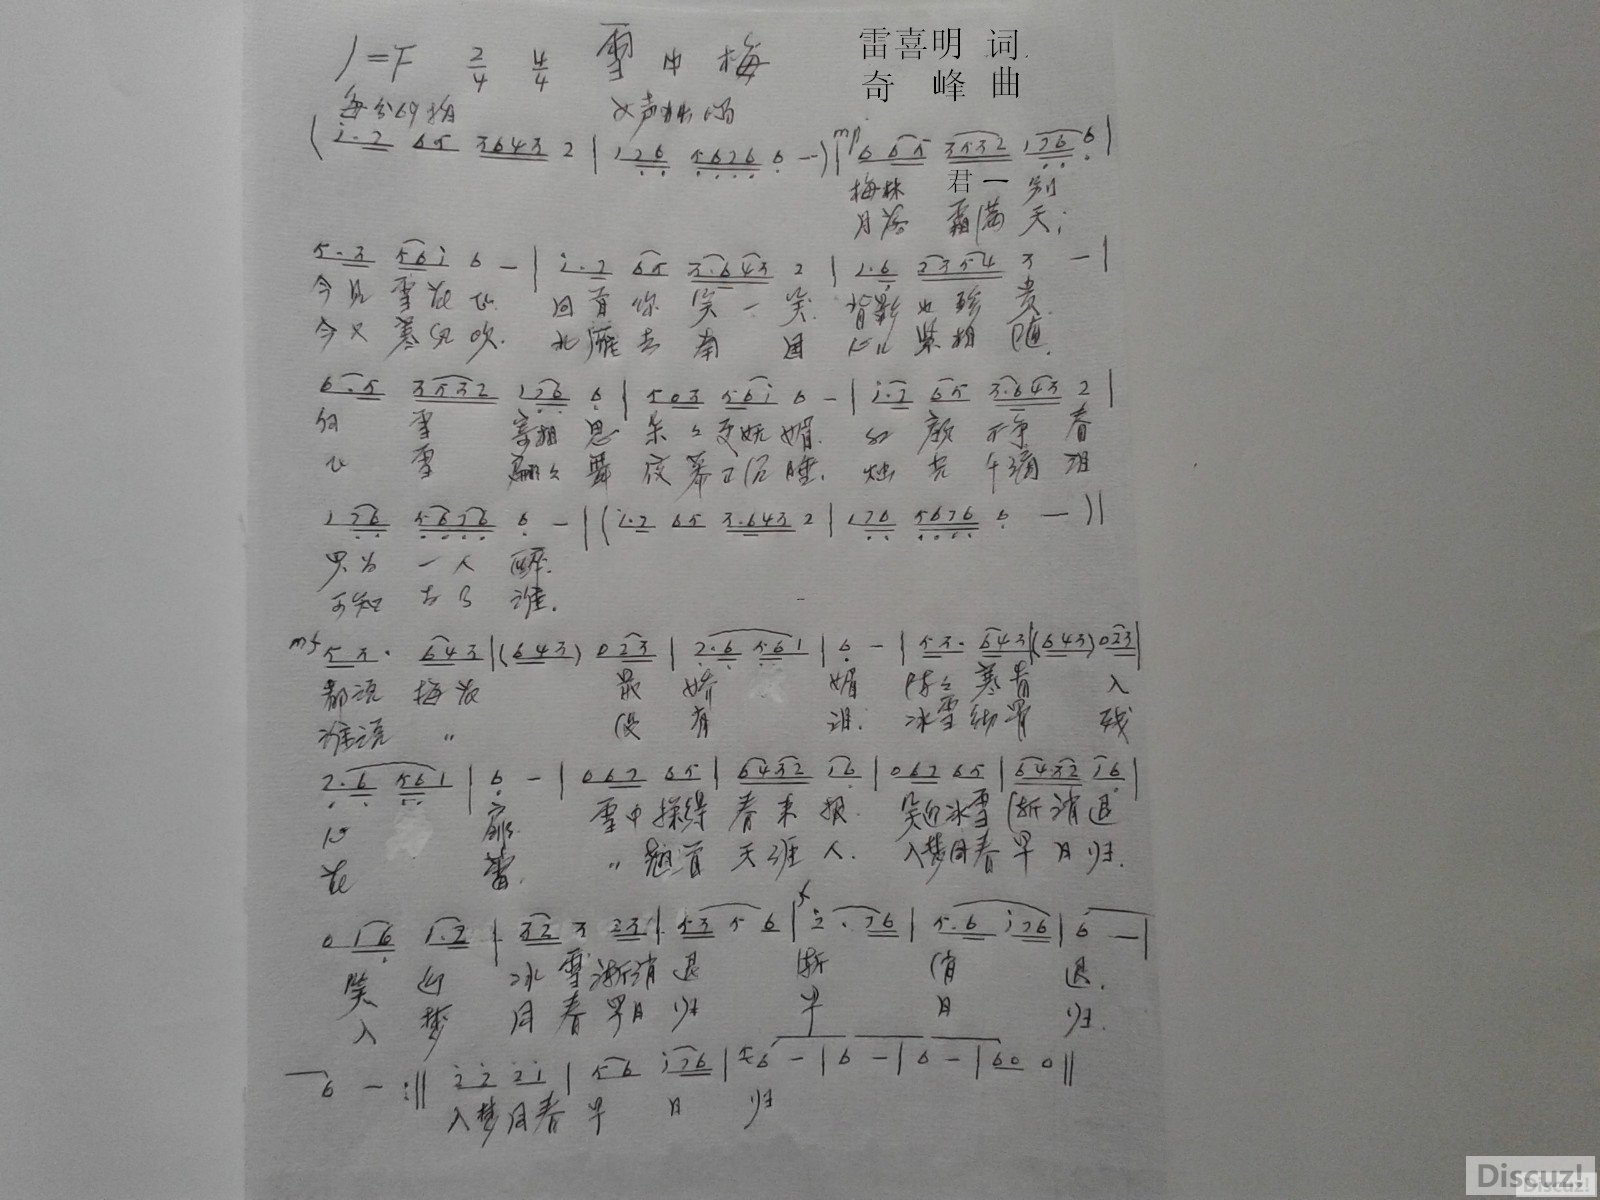 1=F 2/4 4/4 雪中梅 雷喜明 词
奇 峰 曲
每分69拍 女声独唱
(i·2 65 3643 2 | 176 5676 6 —)| mp 6 65 3532 176 6 |
梅林 君一别
月落 霜满天;
5·3 561 6 — | i·2 65 3·643 2 | 1·6 2354 3 — |
今见雪花飞 回首你笑一笑 背影也珍贵
今又寒风吹 北雁去南国 心儿紧相随
6·5 3532 176 6 | 503 561 6 — | i·2 65 3·643 2 |
雪寄相思 朵々更妩媚 红颜不争春
飞雪翩々舞 夜幕正沉睡 烛光千滴泪
1 76 5676 6 — | (i·2 65 3·643 2 | 176 5676 6 — )|
只为一人醉
可知为了谁
mf 53· 643 | (643) 023 | 2·6 561 | 6 — | 53· 643 | (643) 023 |
都说梅花 最娇媚 阵々寒香 入
谁说 〃 没有泪 冰雪彻骨 残
2·6 561 | 6 — | 062 65 | 6432 i6 | 062 65 | 6432 i6 |
心扉 雪中探得春来报 笑迎冰雪渐消退
花蕾 〃 天涯人 入梦同春早日归
0 16 1·2 | 32 3 23 | 53 5 6 | f 2·76 | 5·6 i76 | 6 — |
笑迎冰雪渐消退 渐消退
入梦同春早日归 早日归
6 — :‖ 22 21 | 56 i76 | 56 — | 6 — | 6 — | 60 0 ‖
入梦同春早日归
Discuz!